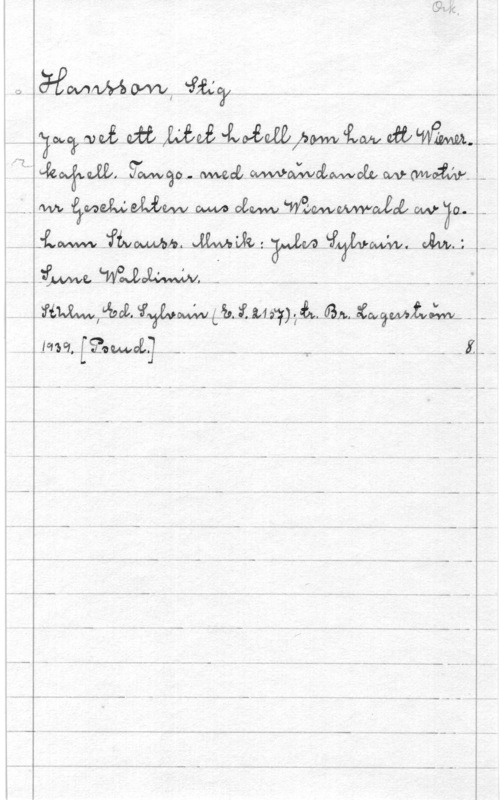 Ork.
Hansson, Stig
Jag vet ett litet hotell som har ett Wiener-
kapell. Tango - med användande av motiv
ur Geschichten aus dem Wienerwald av Jo-
hann Strauss. Musik: Jules Sylvain. Arr.:
Sune Waldimir.
Sthlm, Ed. Sylvain (E.S. 2157); tr. Br. Lagerström
1939. [Pseud.] 8.